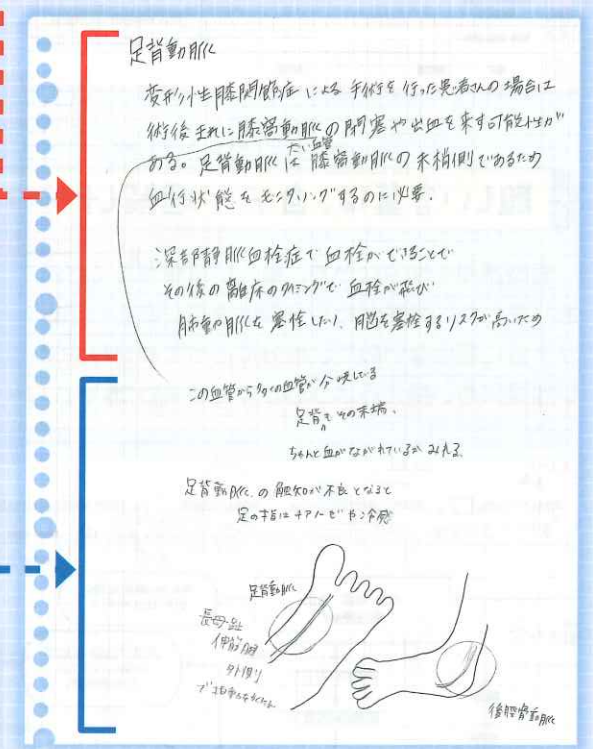 足背動脈
変形性膝関節症による手術を行った患者さんの場合は
術後まれに膝窩動脈の閉塞や出血を来す可能性が
太い血管
ある。足背動脈は膝窩動脈の末梢側であるため
血行状態をモニタリングするのに必要。
深部静脈血栓症で血栓ができることで
その後の離床のタイミングで血栓が飛び
肺動脈を塞栓したり、脳を塞栓するリスクが高いため
この血管から多くの血管が分岐している
足背はその末端。
ちゃんと血がながれているかみれる。
足背動脈の触知が不良となると
足の指はチアノーゼや冷感
足背動脈
長母趾
伸筋腱
外側
後脛骨動脈